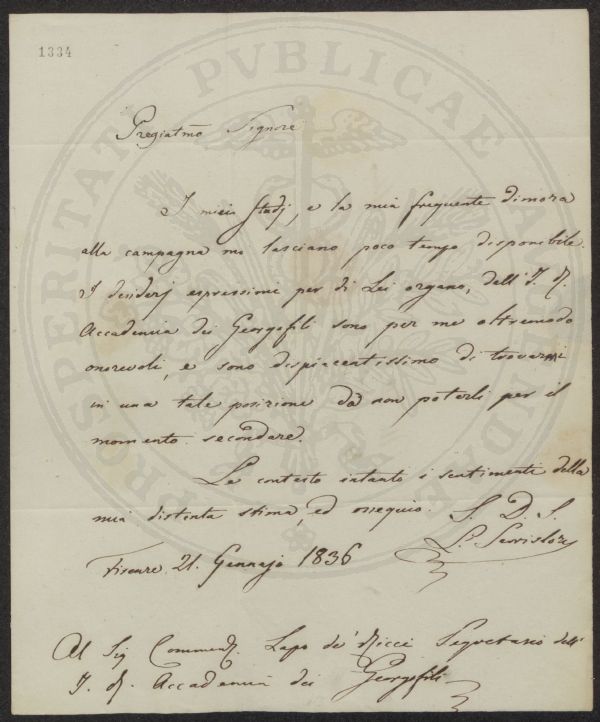 1334
PROSPERITATI PVBLICAE AVGENDAE
Pregiatmo Signore
I miei studj, e la mia frequente dimora
alla campagna mi lasciano poco tempo disponibile.
I desiderj espressimi per di Lei organo, dall'I. R.
Accademia dei Georgofili sono per me oltremodo
onorevoli, e sono dispiacentissimo di trovarmi
in una tale posizione da non poterli per il
momento secondare.
Le contesto intanto i sentimenti della
mia distinta stima, ed ossequio. S. D. S.
L. Serristori
Firenze 21. Gennajo 1836
Al Sig Commend. Lapo de' Ricci Segretario dell'
I. R. Accademia dei Georgofili